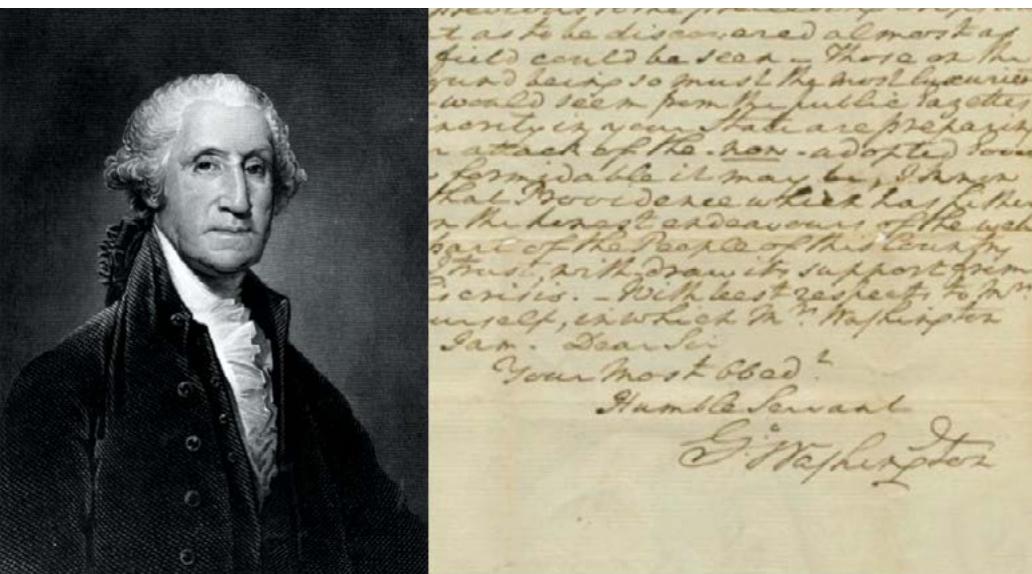 t as to be discovered almost as
field could be seen – Those on the
ound being so must the most luxurien
would seem from the public Gazettes
inority in your State are preparing
r attack of the now - adopted Gov
formidable it may be, I
that Providence which has hithe
n the honest endeavours of the well
part of the People of this Country
trust, withdraw its support from
crisis. – With best respects to Mrs
urself, in which Mrs. Washington
I am – Dear Sir
Your Most Obedt
Humble Servant
Go. Washington